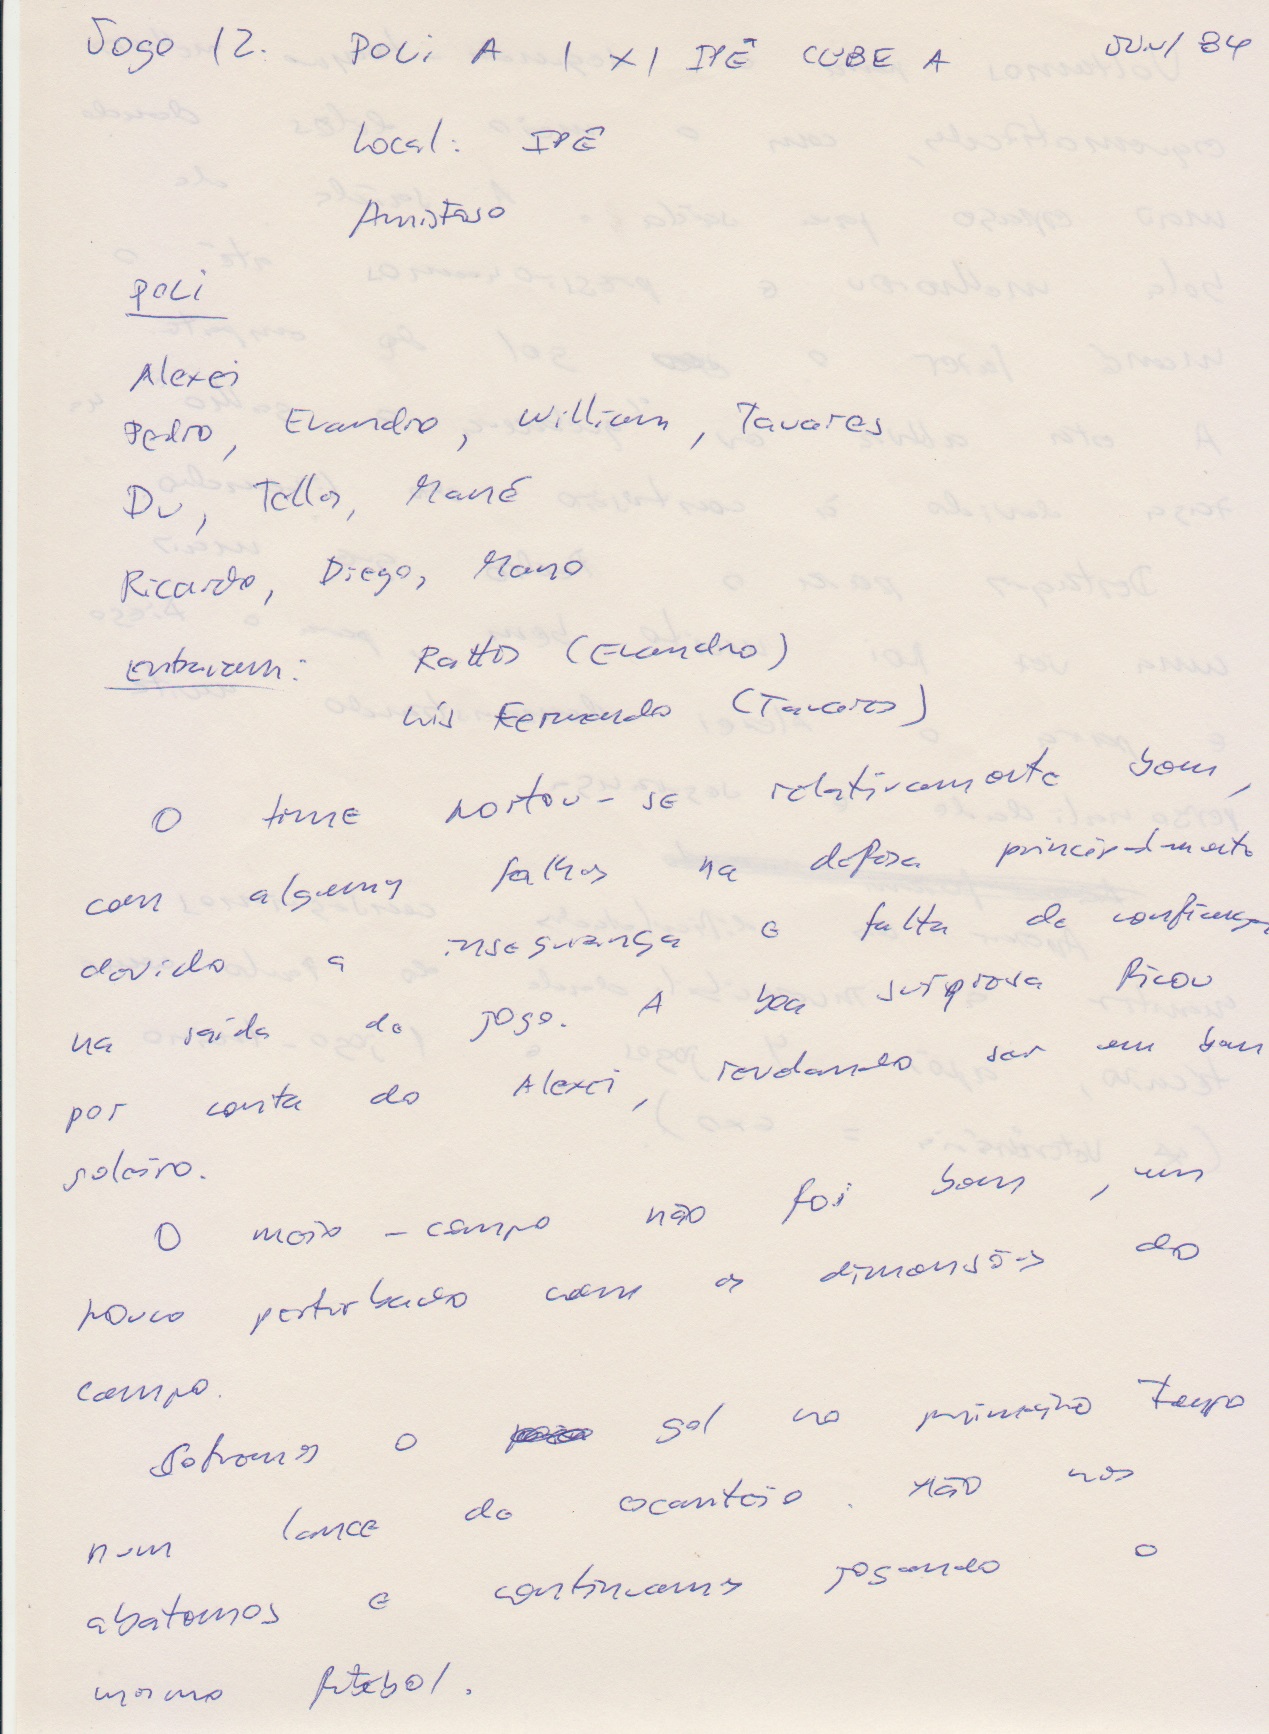 Jogo 12. POLI A 1 X 1 IPÊ CLUBE A JUN/84
Local: IPÊ
Amistoso
POLI
Alexei
Pedro, Evandro, William, Tavares
Du, Tellos, Mané
Ricardo, Diego, Mano
entraram: Rattis (Evandro)
Luis Fernando (Tavares)
O time portou-se relativamente bem,
com algumas falhas na defesa principalmente
devido a insegurança e falta de confiança
na saída de jogo. A boa surpresa ficou
por conta do Alexei, revelando ser um bom
goleiro.
O meio-campo não foi bem, um
pouco perturbado com as dimensões do
campo.
Sofremos o gol no primeiro tempo
num lance de escanteio. Não nos
abatemos e continuamos jogando o
mesmo futebol.